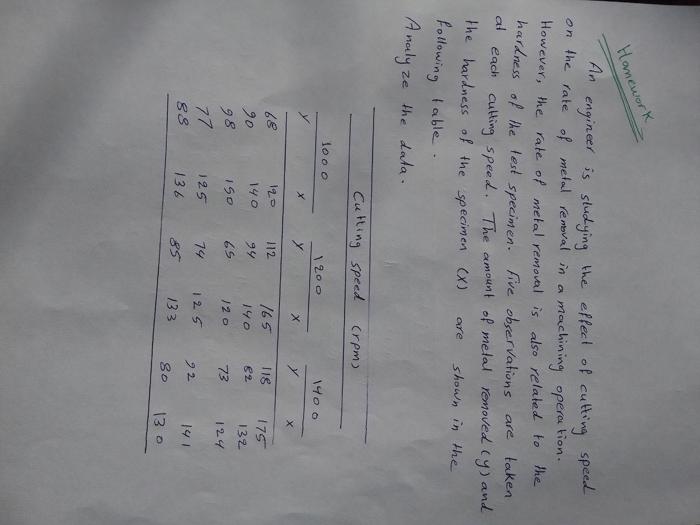 Homework
An engineer is studying the effect of cutting speed
on the rate of metal removal in a machining operation.
However, the rate of metal removal is also related to the
hardness of the test specimen. Five observations are taken
at each cutting speed. The amount of metal removed (y) and
the hardness of the specimen (x) are shown in the
following table.
Analyze the data.
Cutting speed (rpm)
1000 1200 1400
y x y x y x
68 120 112 165 118 175
90 140 94 140 82 132
98 150 65 120 73 124
77 125 74 125 92 141
88 136 85 133 80 130